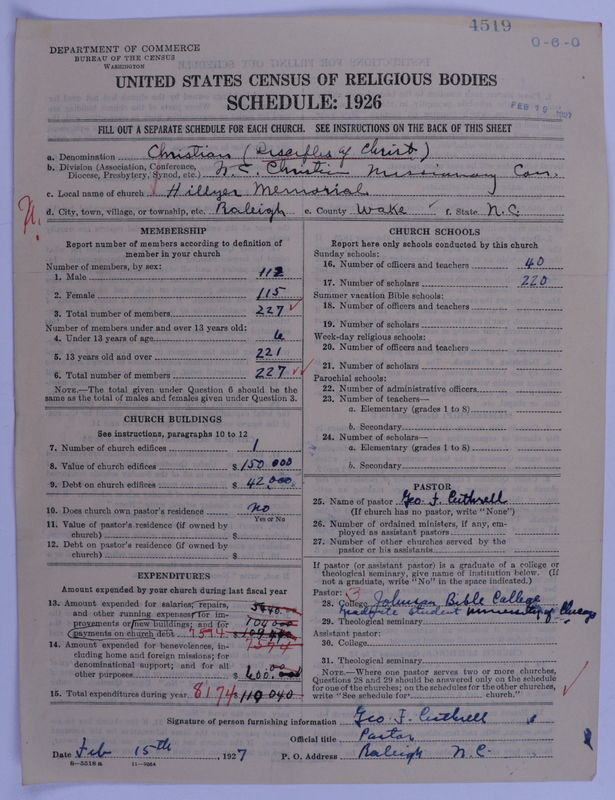 4519
0-6-0
DEPARTMENT OF COMMERCE
BUREAU OF THE CENSUS
WASHINGTON
UNITED STATES CENSUS OF RELIGIOUS BODIES
SCHEDULE: 1926
FEB 19 1927
FILL OUT A SEPARATE SCHEDULE FOR EACH CHURCH. SEE INSTRUCTIONS ON THE BACK OF THIS SHEET
a. Denomination Christian (Disciples of Christ)
b. Division (Association, Conference, Diocese, Presbytery, Synod, etc.) N.C. Christian Missionary Con.
c. Local name of church Hillyer Memorial
d. City, town, village, or township, etc. Raleigh e. County Wake f. State N.C.
MEMBERSHIP
Report number of members according to definition of
member in your church
Number of members, by sex:
1. Male 112
2. Female 115
3. Total number of members 227
Number of members under and over 13 years old:
4. Under 13 years of age 6
5. 13 years old and over 221
6. Total number of members 227
NOTE.—The total given under Question 6 should be
same as the total of males and females given under Question 3.
CHURCH BUILDINGS
See instructions, paragraphs 10 to 12
7. Number of church edifices 1
8. Value of church edifices $150 000
9. Debt on church edifices $42,000
10. Does church own pastor's residence no
Yes or No
11. Value of pastor's residence (if owned by
church) $
12. Debt on pastor's residence (if owned by
church) $
EXPENDITURES
Amount expended by your church during last fiscal year
13. Amount expended for salaries, repairs,
and other running expenses; for im-
provements or new buildings; and for
payments on church debt 7574
14. Amount expended for benevolences, in-
cluding home and foreign missions; for
denominational support; and for all
other purposes $600.00
15. Total expenditures during year 8174 $110 040
CHURCH SCHOOLS
Report here only schools conducted by this church
Sunday schools:
16. Number of officers and teachers 40
17. Number of scholars 220
Summer vacation Bible schools:
18. Number of officers and teachers
19. Number of scholars
Week-day religious schools:
20. Number of officers and teachers
21. Number of scholars
Parochial schools:
22. Number of administrative officers
23. Number of teachers—
a. Elementary (grades 1 to 8)
b. Secondary
24. Number of scholars—
a. Elementary (grades 1 to 8)
b. Secondary
PASTOR
25. Name of pastor Geo. F. Cuthrell
(If church has no pastor, write "None")
26. Number of ordained ministers, if any, em-
ployed as assistant pastors
27. Number of other churches served by the
pastor or his assistants
If pastor (or assistant pastor) is a graduate of a college or
theological seminary, give name of institution below. (If
not a graduate, write "No" in the space indicated.)
Pastor: 3
28. College Johnson Bible College
Graduate student University of Chicago
29. Theological seminary
Assistant pastor:
30. College
31. Theological seminary
NOTE.—Where one pastor serves two or more churches,
Questions 28 and 29 should be answered only on the schedule
for one of the churches; on the schedules for the other churches,
write "See schedule for church."
Signature of person furnishing information Geo. F. Cuthrell
Official title Pastor
Date Feb 15th, 1927 P. O. Address Raleigh N.C.
8—5518 a 11—9264